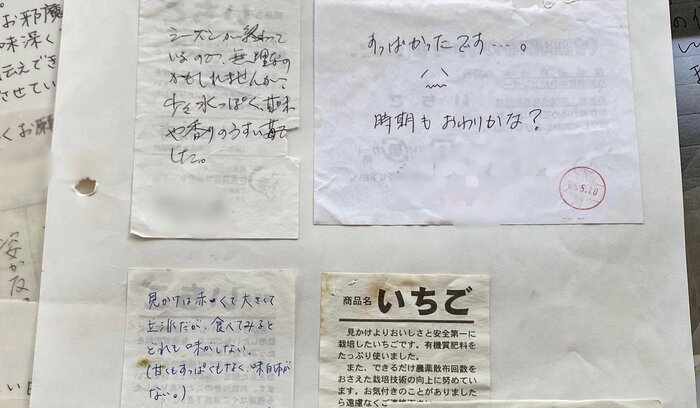 シーズンが終わって
いるので、無理なの
かもしれませんが、
少々水っぽく、甘味
や香りのうすい苺で
した。
すっぱかったです・・・。
時期もおわりかな？
5.10
見かけは赤くて大きくて
立派だが、食べてみると
とれも味がしない。
(甘くもすっぱくもなく、味自体が
ない。)
商品名 いちご
見かけよりおいしさと安全第一に
栽培したいちごです。有機質肥料を
たっぷり使いました。
また、できるだけ農薬散布回数を
おさえた栽培技術の向上に努めてい
ます。お気付きのことがありました
ら遠慮なくご連絡下さい
お邪魔
味深く
伝えでき
させてい
くお願